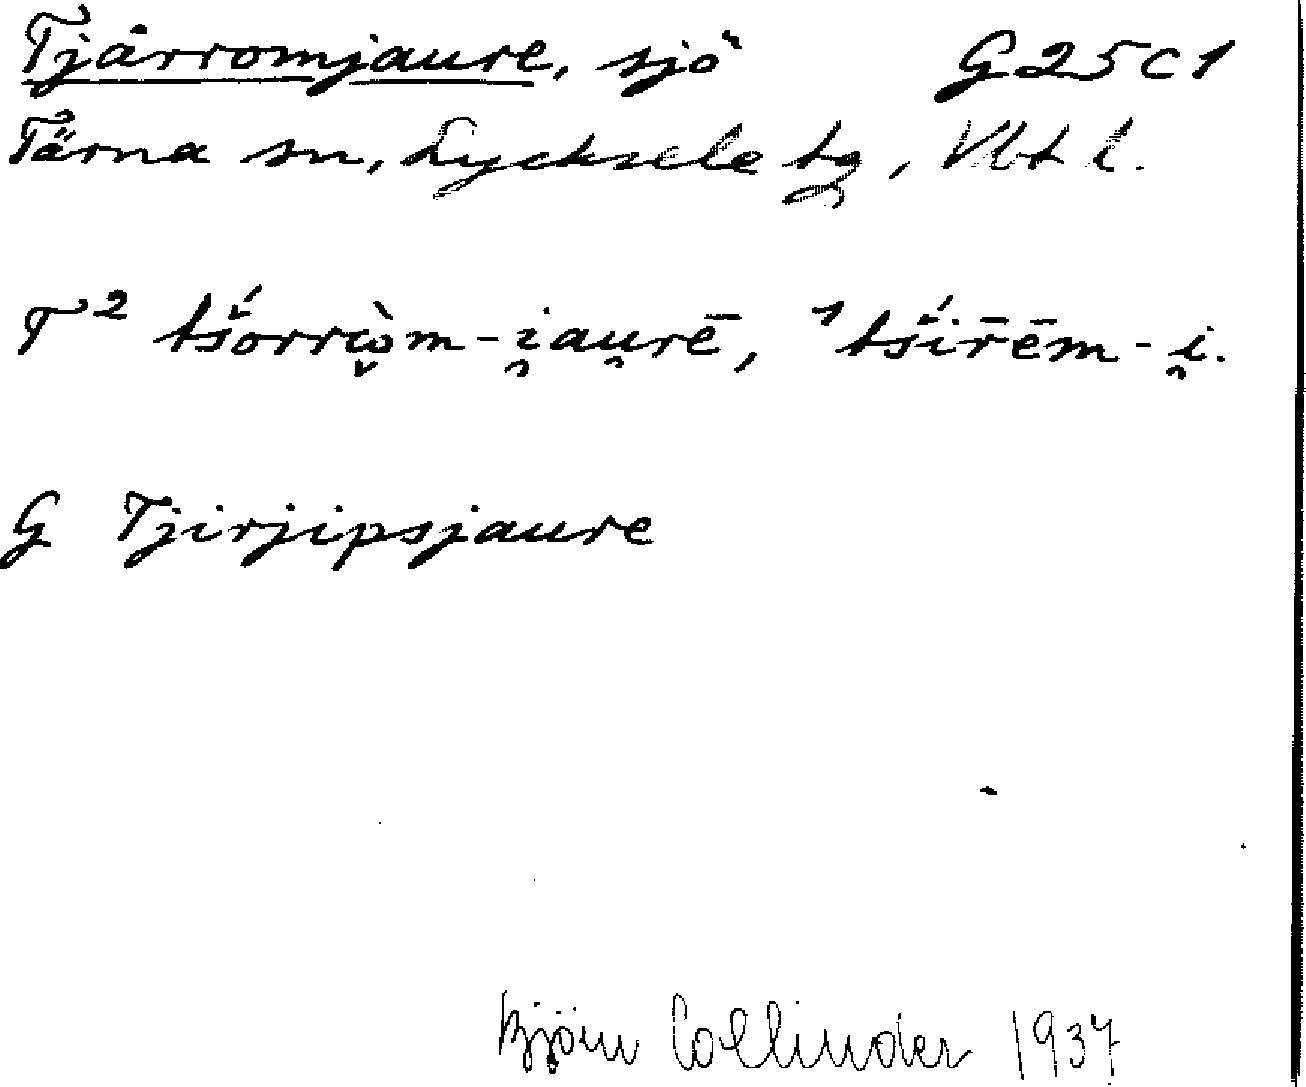 Tjårromjaure, sjö G25C1
Tärna sn, Lycksele tg, Vbt l.
T² tš́orrὼ̬m-i̯au̯rē, ¹tš́ir̄ēm-i̯.
G Tjirjipsjaure
Björn Collinder 1937